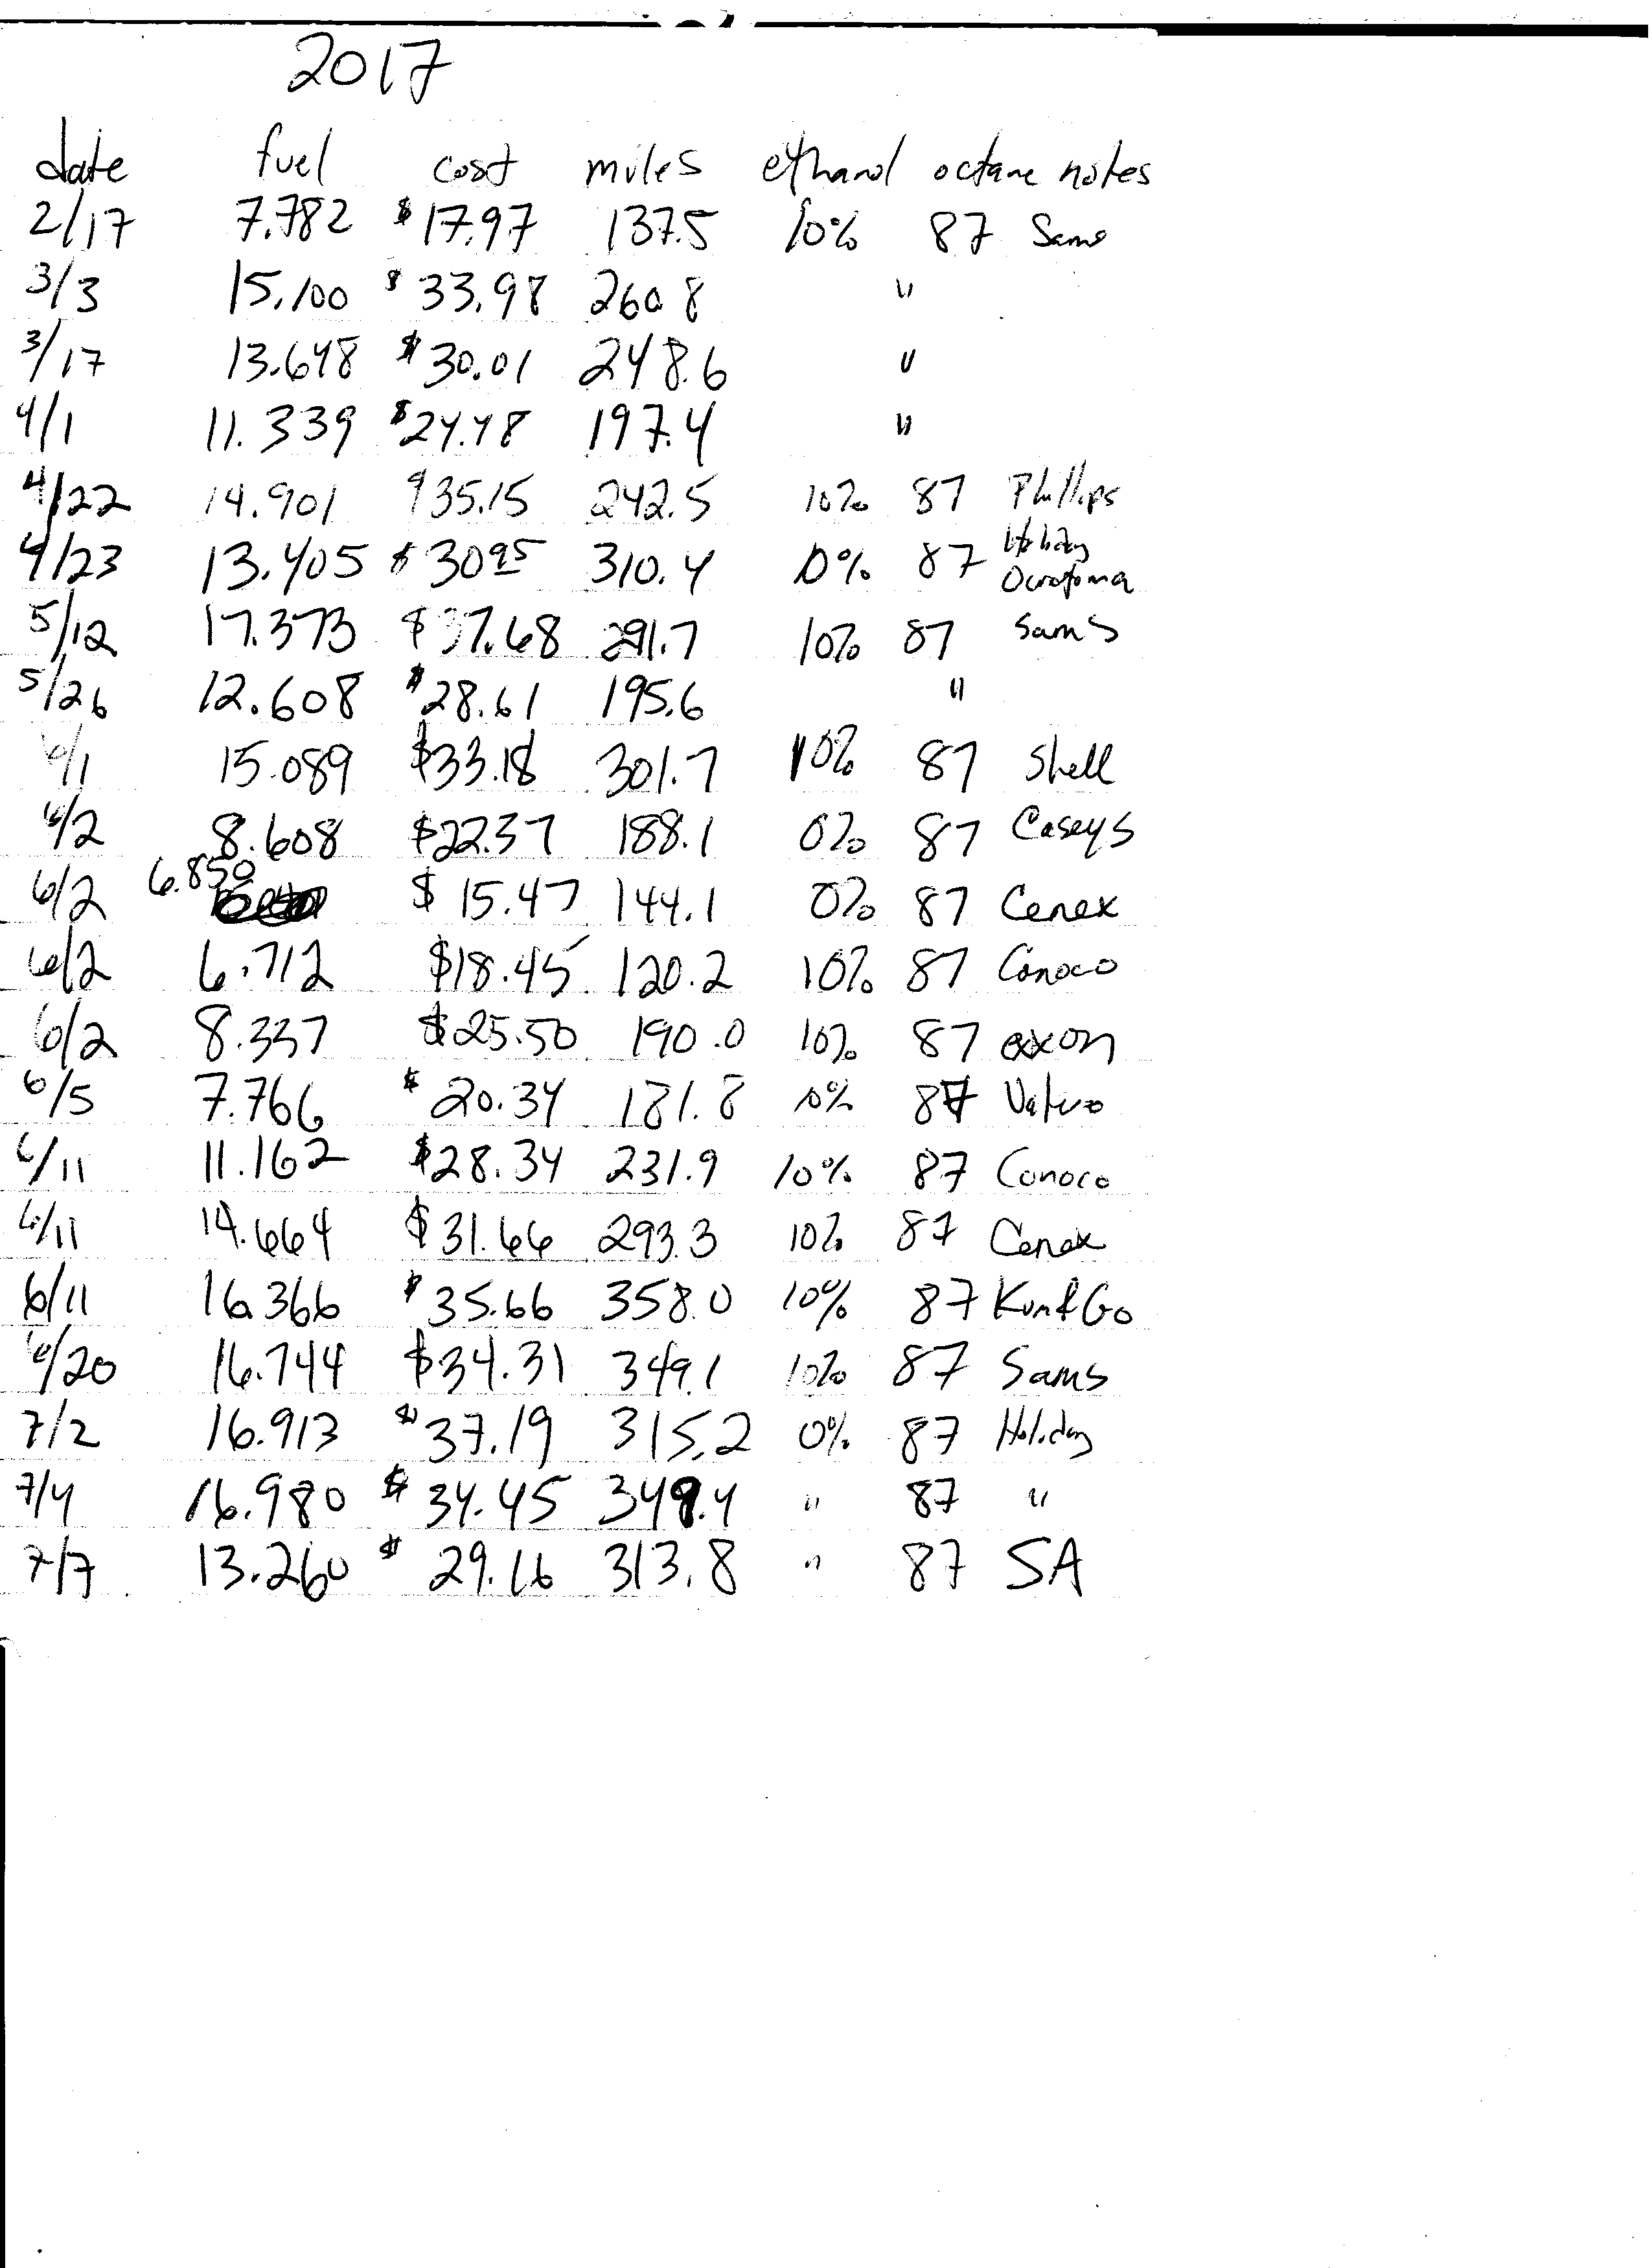 2017
date fuel cost miles ethanol octane notes
2/17 7.782 $17.97 137.5 10% 87 Sams
3/3 15.100 $33.98 260.8 "
3/17 13.648 $30.01 248.6 "
4/1 11.339 $24.48 197.4 "
4/22 14.901 $35.15 242.5 10% 87 Phillips
4/23 13.405 $30.95 310.4 10% 87 Holiday Owatonna
5/12 17.373 $37.68 291.7 10% 87 Sams
5/26 12.608 $28.61 195.6 "
6/1 15.089 $33.18 301.7 10% 87 Shell
6/2 8.608 $22.37 188.1 0% 87 Caseys
6/2 6.850 $15.47 144.1 0% 87 Cenex
6/2 6.712 $18.45 120.2 10% 87 Conoco
6/2 8.337 $25.50 190.0 10% 87 exxon
6/5 7.766 $20.34 181.8 10% 87
6/11 11.162 $28.34 231.9 10% 87 Conoco
6/11 14.664 $31.66 293.3 10% 87 Cenex
6/11 16.366 $35.66 358.0 10% 87 Kum&Go
6/20 16.744 $34.31 349.1 10% 87 Sams
7/2 16.913 $37.19 315.2 0% 87 Holiday
7/4 16.980 $34.45 349.4 " 87 "
7/7 13.260 $29.16 313.8 " 87 SA